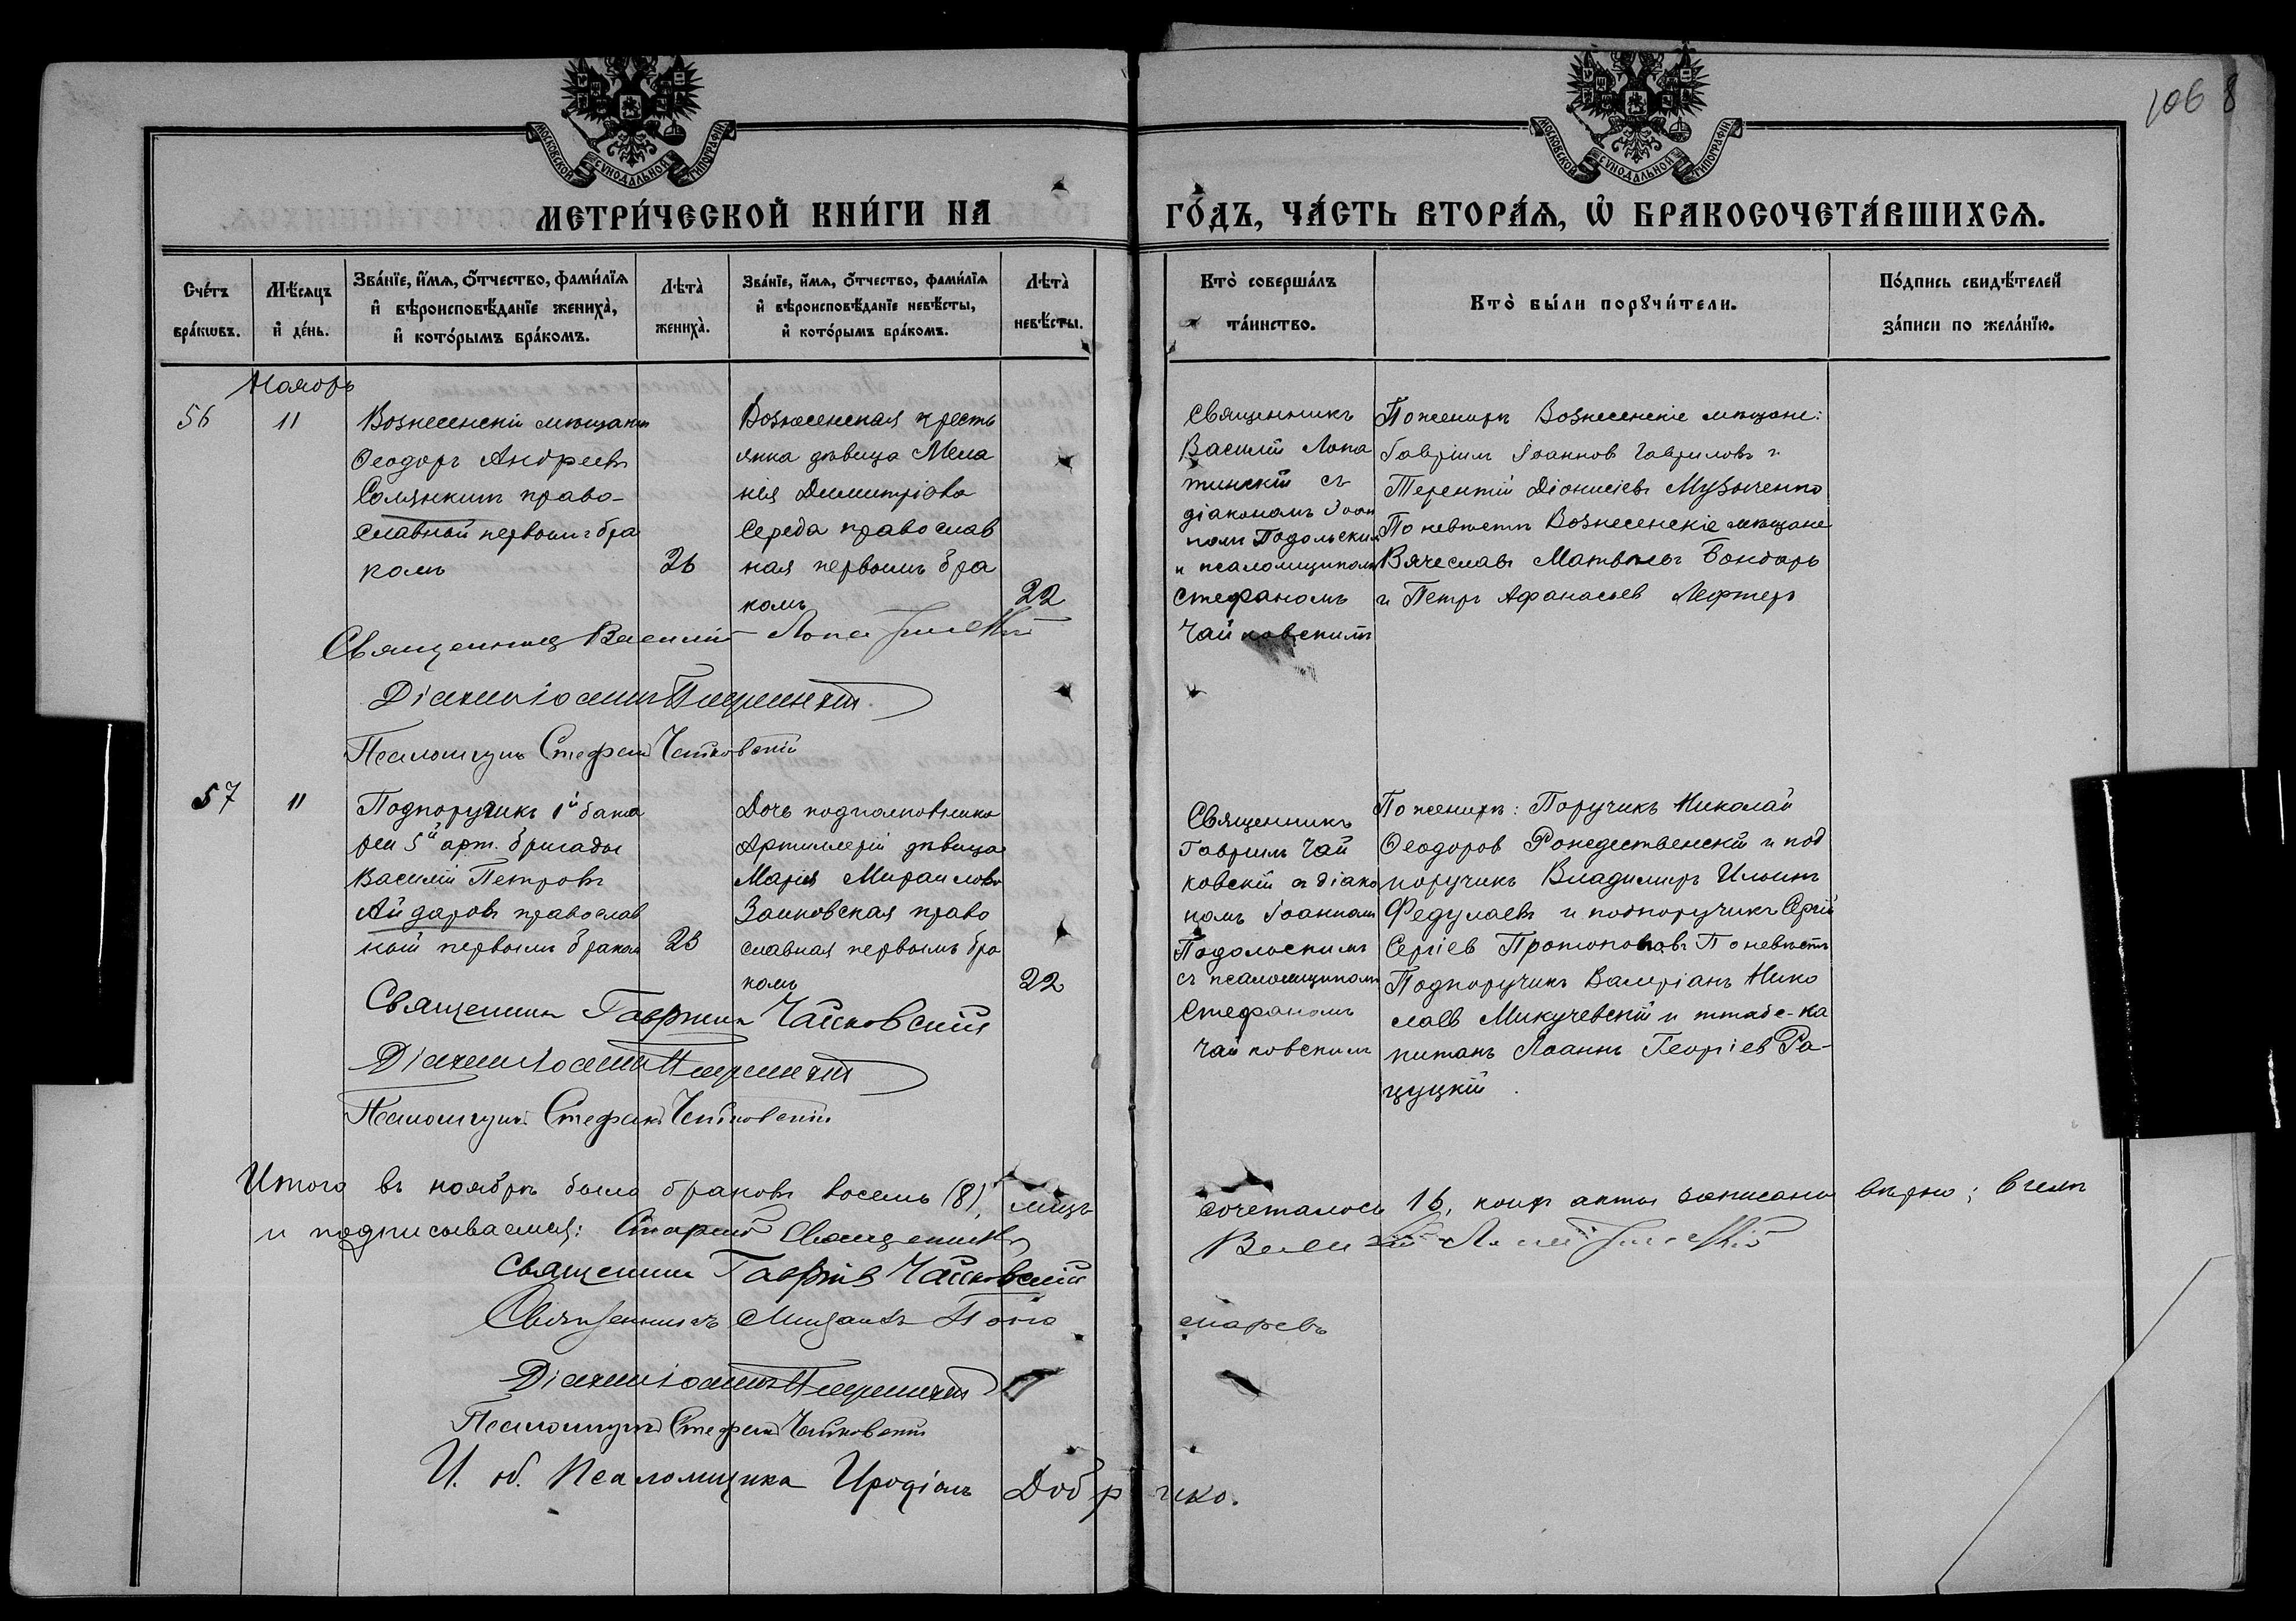 1068
МОСКОВСКОЙ СѴНОДАЛЬНОЙ ТИПОГРАФІИ
МОСКОВСКОЙ СѴНОДАЛЬНОЙ ТИПОГРАФІИ
МЕТРИ́ЧЕСКОЙ КНИ́ГИ НА ГО́ДЪ, ЧА́СТЬ ВТОРА́Ѧ, Ѡ҆ БРАКОСОЧЕТА́ВШИХСѦ.
Сче́тъ
бра́кѡвъ.
Мѣ́сяцъ
и҆ де́нь.
Зва́нїе, и҆́мѧ, ѻ҆́тчество, фами́лїѧ
и҆ вѣроисповѣ́данїе жениха̀,
и҆ кото́рымъ бра́комъ.
Лѣта̀
жениха̀.
Зва́нїе, и҆́мѧ, ѻ҆́тчество, фами́лїѧ
и҆ вѣроисповѣ́данїе невѣ́сты,
и҆ кото́рымъ бра́комъ.
Лѣта̀
невѣ́сты.
Кто̀ соверша́лъ
та́инство.
Кто̀ бы́ли порꙋчи́тели.
По́дпись свидѣ́телей
за́писи по жела́нїю.
Ноябрь
56
11
Вознесенскій мѣщанинъ
Ѳеодоръ Андреевъ
Солянкинъ право-
славный первымъ бра
комъ
26
Вознесенская кресть
янка дѣвица Мела
нія Димитріова
Середа православ
ная первымъ бра
комъ
22
Священникъ
Василій Лопа
тинскій съ
діакономъ Іоан
номъ Подольскимъ
и псаломщикомъ
Стефаномъ
Чайковскимъ
По женихѣ Вознесенскіе мѣщане:
Гавріилъ Іоаннов Гавриловъ и
Терентій Діонисіевъ Музыченко
По невѣстѣ Вознесенскіе мѣщане
Вячеславъ Матвѣевъ Бондарь
и Петръ Афанасьев Лефтеръ
Священникъ Василій Лопатинскій
Діаконъ Іоаннъ
Псаломщикъ Стефанъ Чайковскій
57
11
Подпоручикъ 1й бата
реи 5й арт. бригады
Василій Петровъ
Айдаровъ православ
ный первымъ бракомъ
23
Дочь подполковника
Артиллеріи дѣвица
Марія Михаилова
Заиковская право
славная первымъ бра
комъ
22
Священникъ
Гавріилъ Чай
ковскій съ діако
номъ Іоанномъ
Подольскимъ
съ псаломщикомъ
Стефаномъ
Чайковскимъ
По женихѣ: Поручикъ Николай
Ѳеодоров Рождественскій и под
поручикъ Владимиръ Ильинъ
Федулаевъ и подпоручикъ Сергій
Сергіев Протопоповъ По невѣстѣ
Подпоручикъ Валеріанъ Нико
лаев Микучевскій и штабс-ка
питанъ Іоаннъ Георгіев Ра-
цуцкій.
Священникъ Гавріилъ Чайковскій
Діаконъ Іоаннъ
Псаломщикъ Стефанъ Чайковскій
Итого въ ноябрѣ было браковъ восемь (8), лицъ сочеталось 16, коихъ акты записаны вѣрно; в чемъ
и подписываемся: Старшій Священникъ Василій Лопатинскій
Священникъ Гавріилъ Чайковскій
Священникъ Михаилъ
Діаконъ Іоаннъ
Псаломщикъ Стефанъ Чайковскій
И. об. Псаломщика Иродіонъ